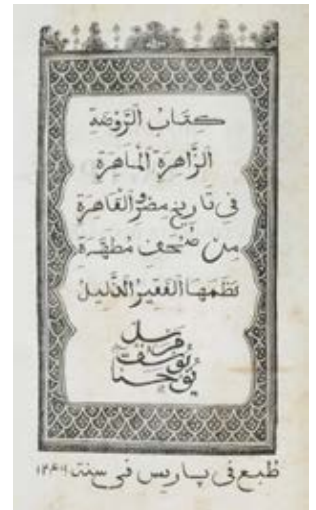 كِتَابُ الرَّوْضَةِ
الزَّاهِرَةِ الْمَاهِرَةِ
فِي تَارِيخِ مِصْرَ وَالْقَاهِرَةِ
مِن صُحُفٍ مُطَهَّرَةٍ
نَظَمَهَا الْفَقِيرُ الذَّلِيلُ
يوسف
يوحنا
طُبع في پاريس في سنة